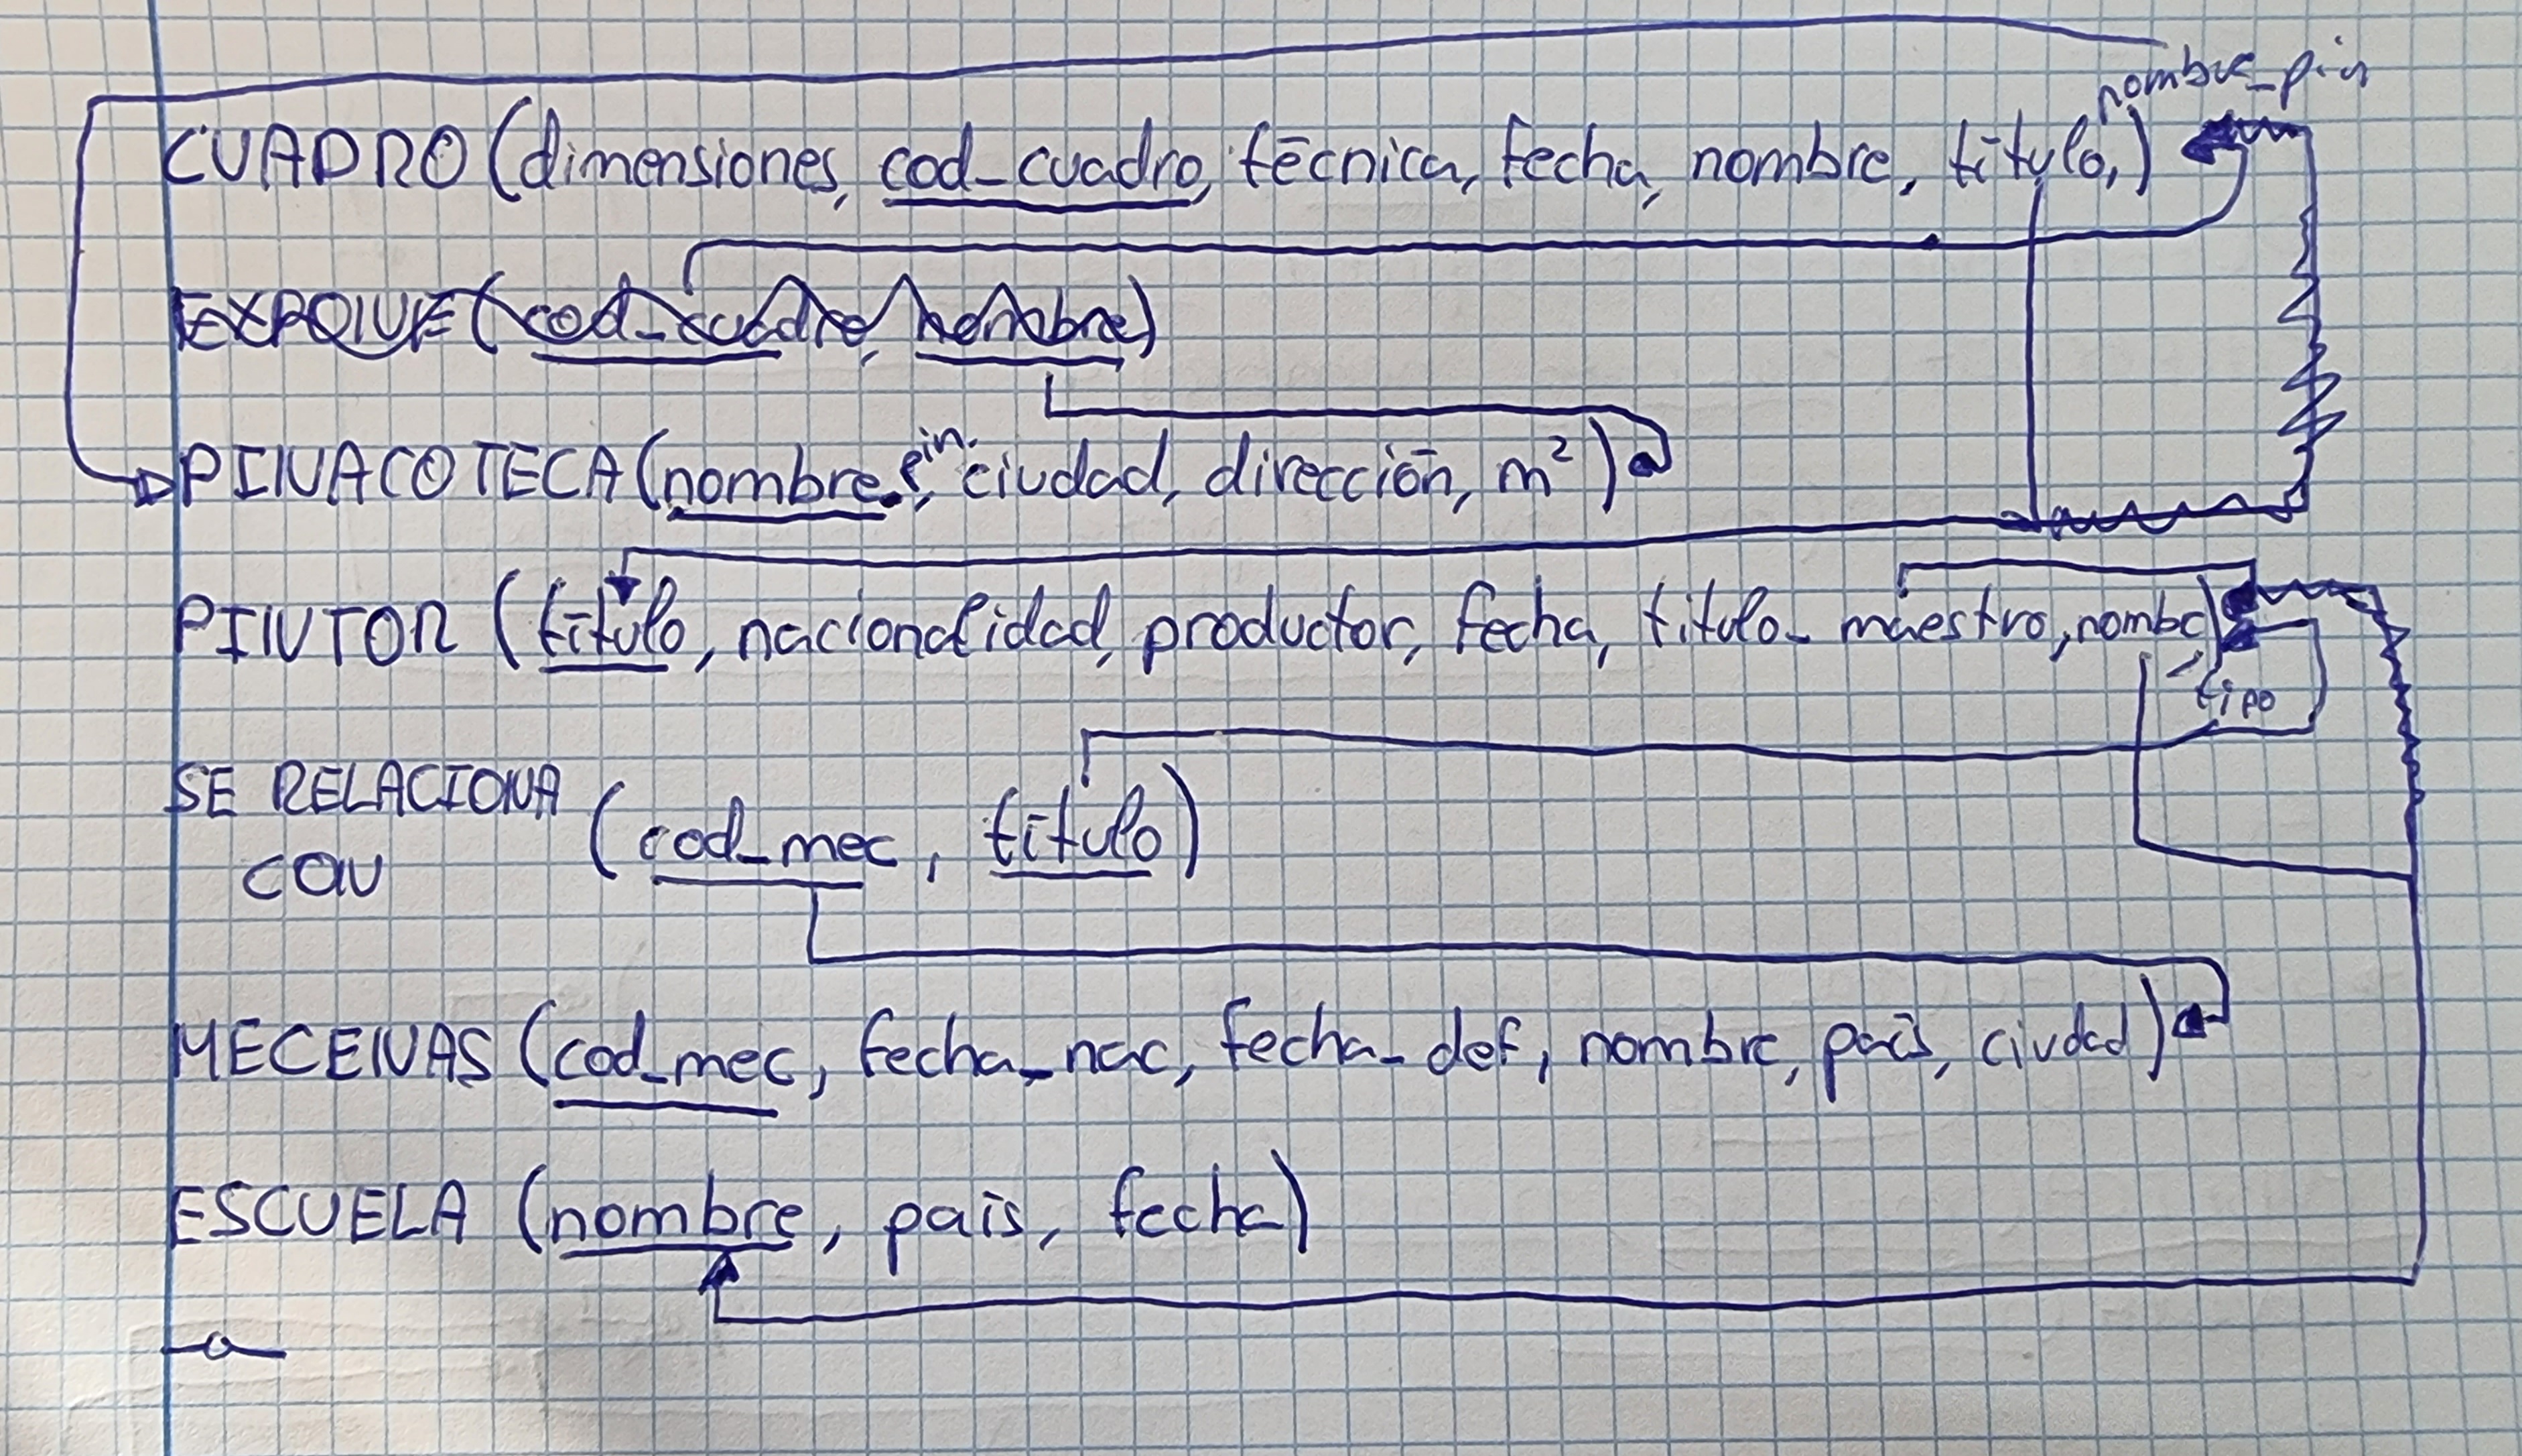 nombre_pin
CUADRO (dimensiones, cod_cuadro, técnica, fecha, nombre, título,)
EXPONE (cod_cuadro, nombre)
PINACOTECA (nombre_pin, ciudad, dirección, m²)
PINTOR (título, nacionalidad, productor, fecha, titulo_maestro, nombre)
tipo
SE RELACIONA
CON (cod_mec, título)
MECENAS (cod_mec, fecha_nac, fecha_def, nombre, país, ciudad)
ESCUELA (nombre, país, fecha)